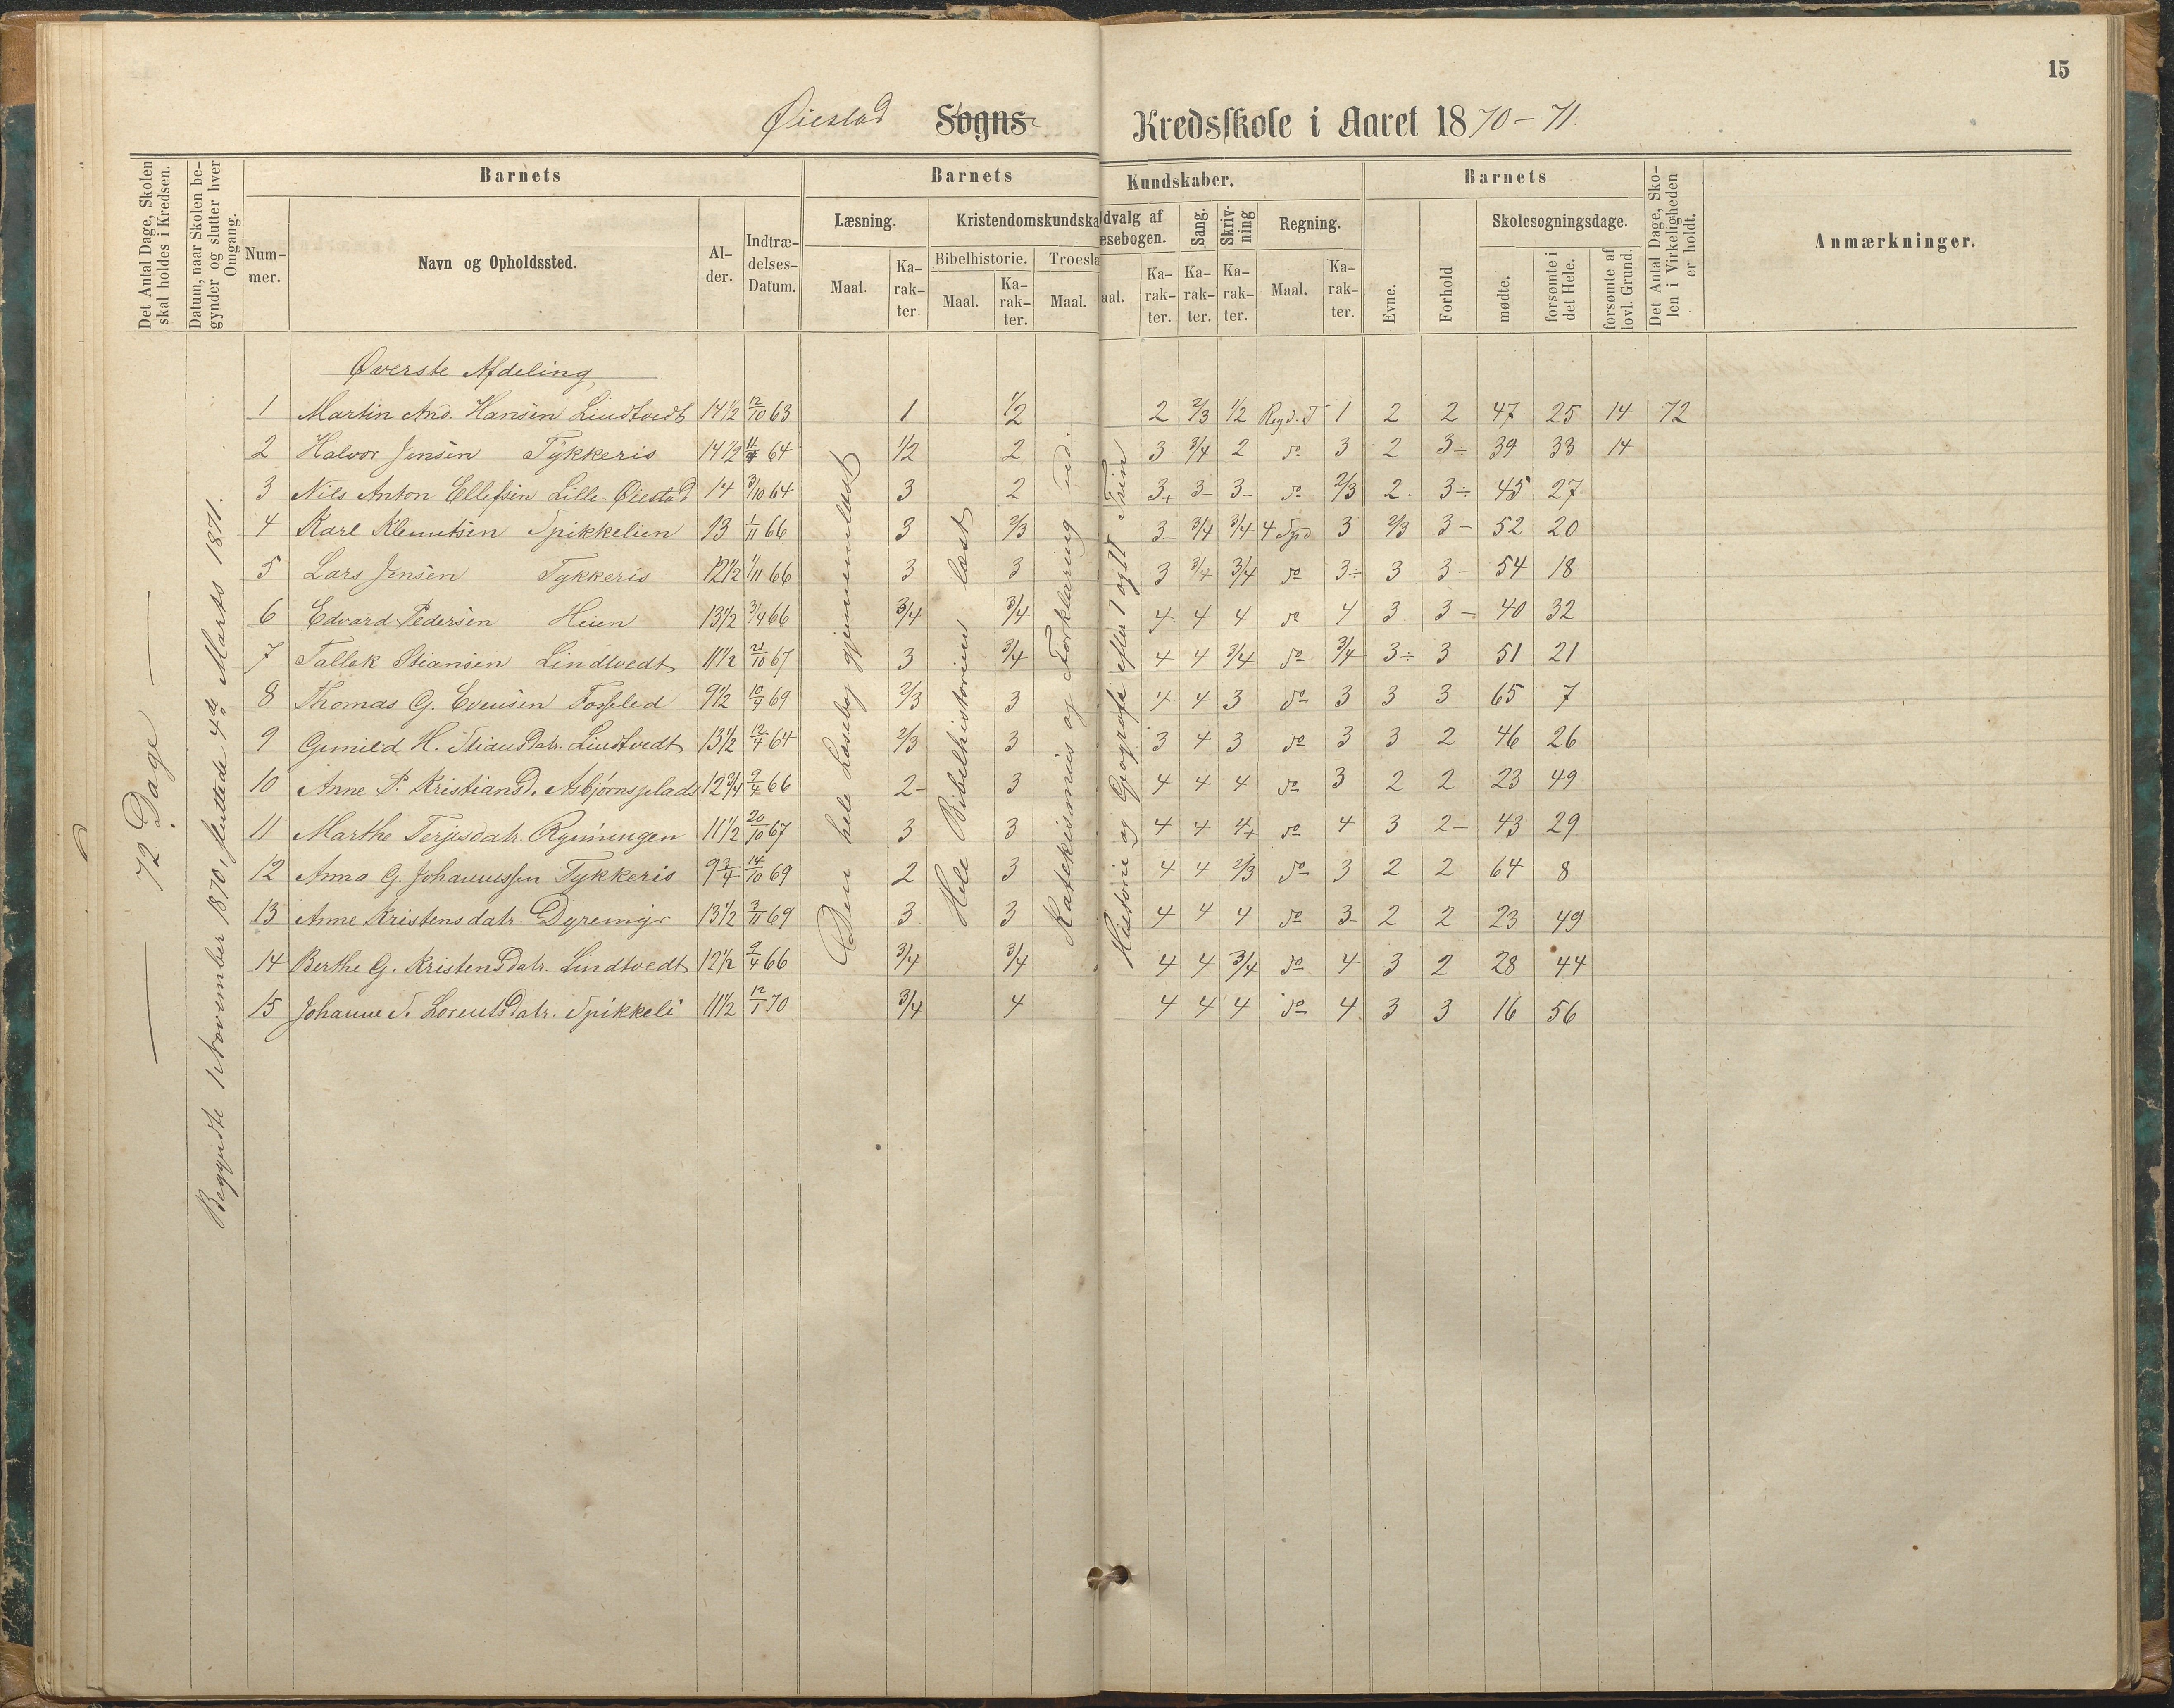 15
Øiestad Sogns- Kredsskole i Aaret 1870-71.
Det Antal Dage, Skolen skal holdes i Kredsen.
Datum, naar Skolen begynder og slutter hver Omgang.
Barnets
Barnets
Kundskaber.
Barnets
Det Antal Dage, Skolen i Virkeligheden er holdt.
Anmærkninger.
Nummer.
Navn og Opholdssted.
Alder.
Indtrædelses-Datum.
Læsning.
Kristendomskundska
Udvalg af
æsebogen.
Sang.
Skrivning
Regning.
Evne.
Forhold
Skolesøgningsdage.
Bibelhistorie.
Troesla
Maal.
Karakter
Maal.
Karakter.
Maal.
aal.
Karakter.
Karakter.
Karakter.
Maal.
Karakter.
mødte.
forsømte i det Hele.
forsømte af lovl. Grund.
72 Dage
Begyndte 1 November 1870, sluttede 4de Marts 1871.
Den hele Læsebog gjennemlæst
Hele Bibelhistorien læst
Katekismus og Forklaring ud.
Historie og Geografi efter 1 og II Trin
Øverste Afdeling
1 Martin And. Hansen Lindtvedt 14 1/2 12/10 63 1 1/2 2 2/3 1/2 Regd.T 1 2 2 47 25 14 72
2 Halvor Jensen Tykkeris 14 1/2 64 1/2 2 3 3/4 2 do 3 2 3÷ 39 33 14
3 Nils Anton Ellefsen Lille-Øiestad 14 3/10 64 3 2 3+ 3- 3- do 2/3 2. 3÷ 45 27
4 Karl Klemetsen Spikkelien 13 1/11 66 3 2/3 3- 3/4 3/4 4 Spd 3 2/3 3- 52 20
5 Lars Jensen Tykkeris 12 1/2 1/11 66 3 3 3 3/4 3/4 do 3÷ 3 3- 54 18
6 Edvard Pedersen Heien 13 1/2 3/4 66 3/4 3/4 4 4 4 do 4 3 3- 40 32
7 Tallak Stiansen Lindtvedt 11 1/2 21/10 67 3 3/4 4 4 3/4 do 3/4 3÷ 3 51 21
8 Thomas G. Evensen Fosseled 9 1/2 10/4 69 2/3 3 4 4 3 do 3 3 3 65 7
9 Gunild H. Stiansdatr. Lindtvedt 13 1/2 12/4 64 2/3 3 3 4 3 do 3 3 2 46 26
10 Anne P. Kristiansd. Asbjørnsplads 12 3/4 9/4 66 2- 3 4 4 4 do 3 2 2 23 49
11 Marthe Terjesdatr. Rymingen 11 1/2 20/10 67 3 3 4 4 4+ do 4 3 2- 43 29
12 Anna G. Johannessen Tykkeris 9 3/4 14/10 69 2 3 4 4 2/3 do 3 2 2 64 8
13 Anne Kristensdatr. Dyremyr 13 1/2 3/11 69 3 3 4 4 4 do 3- 2 2 23 49
14 Berthe G. Kristensdatr. Lindtvedt 12 1/2 9/4 66 3/4 3/4 4 4 3/4 do 4 3 2 28 44
15 Johanne S. Lorentsdatr. Spikkeli 11 1/2 12/1 70 3/4 4 4 4 4 do 4 3 3 16 56